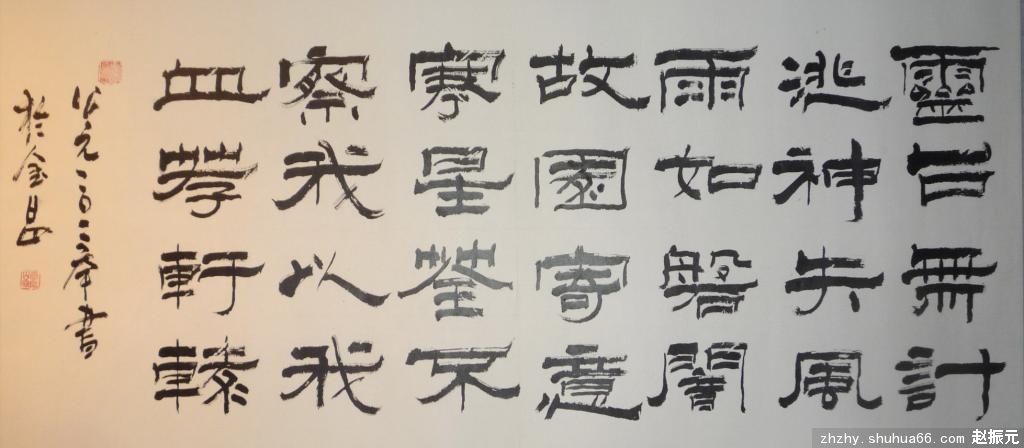 靈台無計
逃神矢風
雨如磐闇
故園寄意
寒星荃不
察我以我
血荐軒轅
公元年書
於金昌
zhzhy.shuhua66.com 赵振元